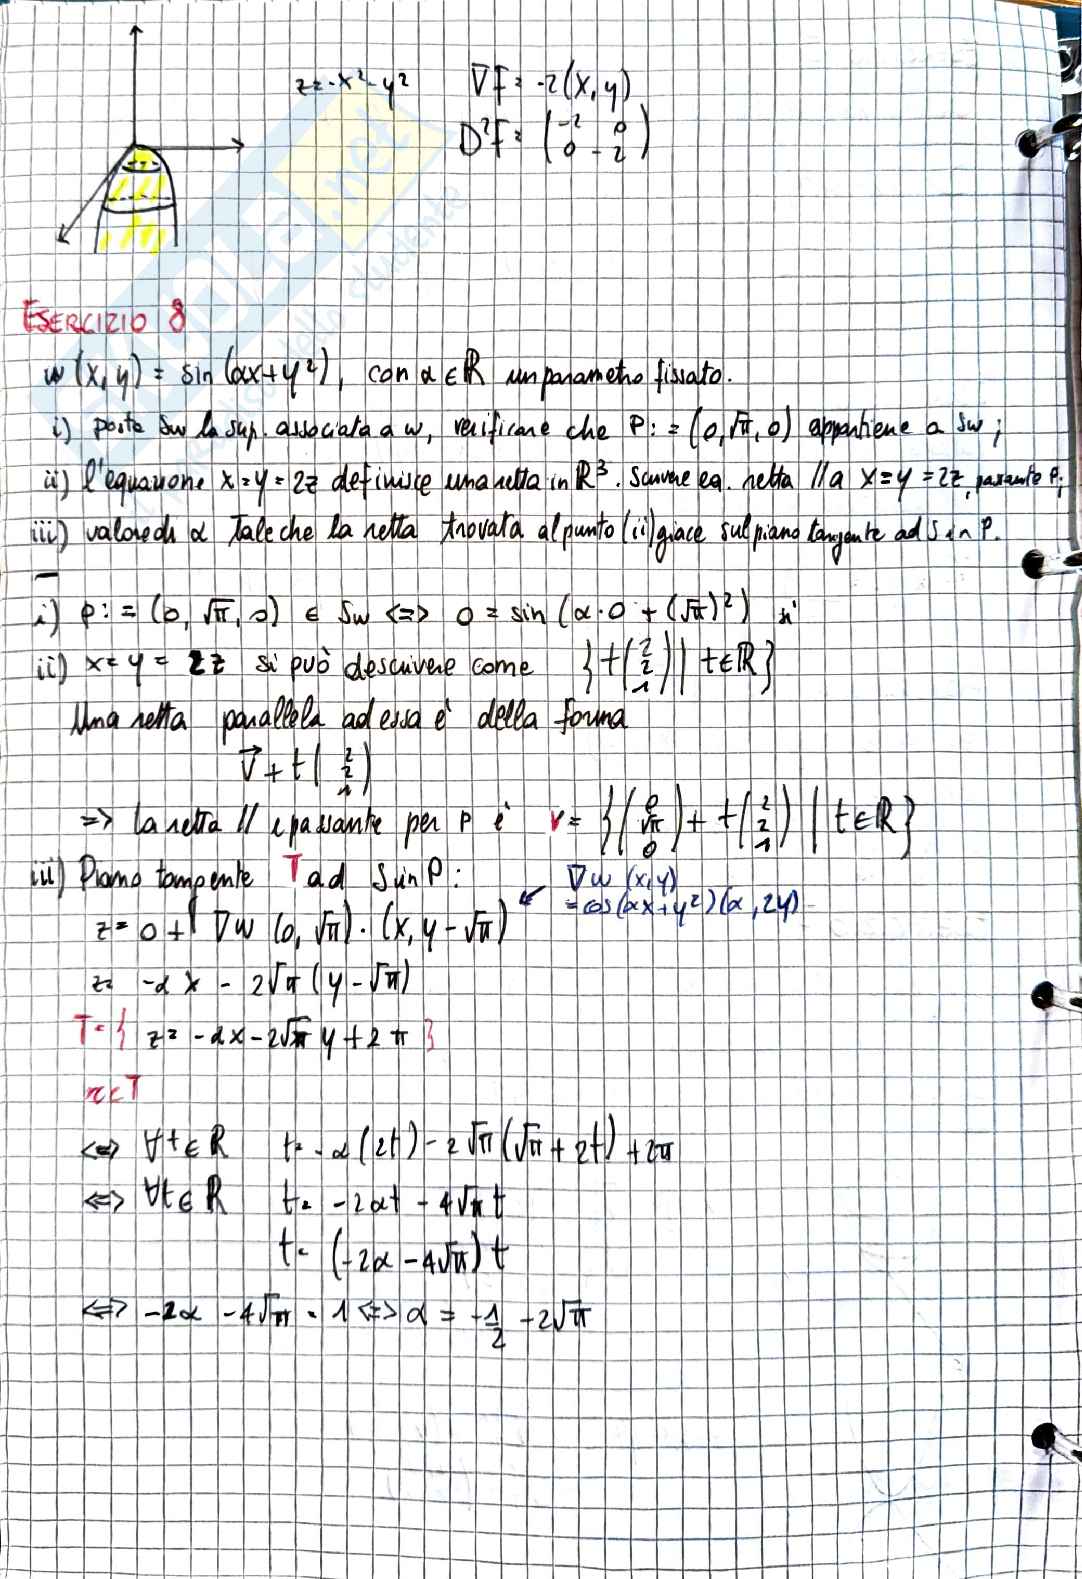 z=-x²-y² ∇F= -2(x,y)
D²F= (-2 0
0 -2)
ESERCIZIO 8
w(x,y) = sin(αx+y²), con α∈ℝ un parametro fissato.
i) posta Sw la sup. associata a w, verificare che P:=(0,√π,0) appartiene a Sw;
ii) l'equazione x=y=2z definisce una retta in ℝ³. Scrivere eq. retta // a x=y=2z, passante P;
iii) valore di α tale che la retta trovata al punto (ii) giace sul piano tangente ad S in P.
i) P:=(0,√π,0) ∈ Sw <=> 0 = sin(α·0+(√π)²) sì
ii) x=y=2z si può descrivere come {t(2 2 1) | t∈ℝ}
Una retta parallela ad essa è della forma
v⃗+t(2 2 1)
=> la retta // e passante per P è r= {(0 √π 0)+t(2 2 1) | t∈ℝ}
iii) Piano tangente T ad S in P:
∇w (x,y)
=cos(αx+y²)(α,2y)
z= 0+ ∇w (0,√π)·(x,y-√π)
z= -αx - 2√π(y-√π)
T={ z= -αx-2√π y+2π }
r⊂T
<=> ∀t∈ℝ t= -α(2t)-2√π(√π+2t)+2π
<=> ∀t∈ℝ t= -2αt -4√π t
t= (-2α-4√π)t
<=> -2α -4√π = 1 <=> α = -1/2 -2√π